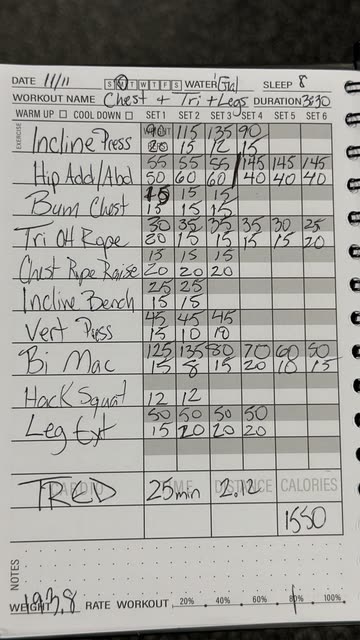 DATE 11/11 S M T W T F S WATER 1 Gal SLEEP 8
WORKOUT NAME Chest + Tri + Legs DURATION 3:30
WARM UP COOL DOWN SET 1 SET 2 SET 3 SET 4 SET 5 SET 6
EXERCISE
WEIGHT 90 115 135 90
Incline Press 20 15 12 15
55 55 55 145 145 145
Hip Add/Abd 50 60 60 40 40 40
15 15 15
Bum Chest 15 15 15
30 35 35 35 30 25
Tri OH Rope 20 15 15 15 15 20
15 15 15
Chest Rope Raise 20 20 20
25 25
Incline Bench 15 15
45 45 45
Vert Press 15 10 10
125 135 80 70 60 50
Bi Mac 15 8 15 20 10 15
Hack Squat 12 12
50 50 50 50
Leg Ext 15 20 20 20
CARDIO TIME DISTANCE CALORIES
TRED 25 min 2.12
1550
NOTES
WEIGHT 193.8 RATE WORKOUT 20% 40% 60% 80% 100%